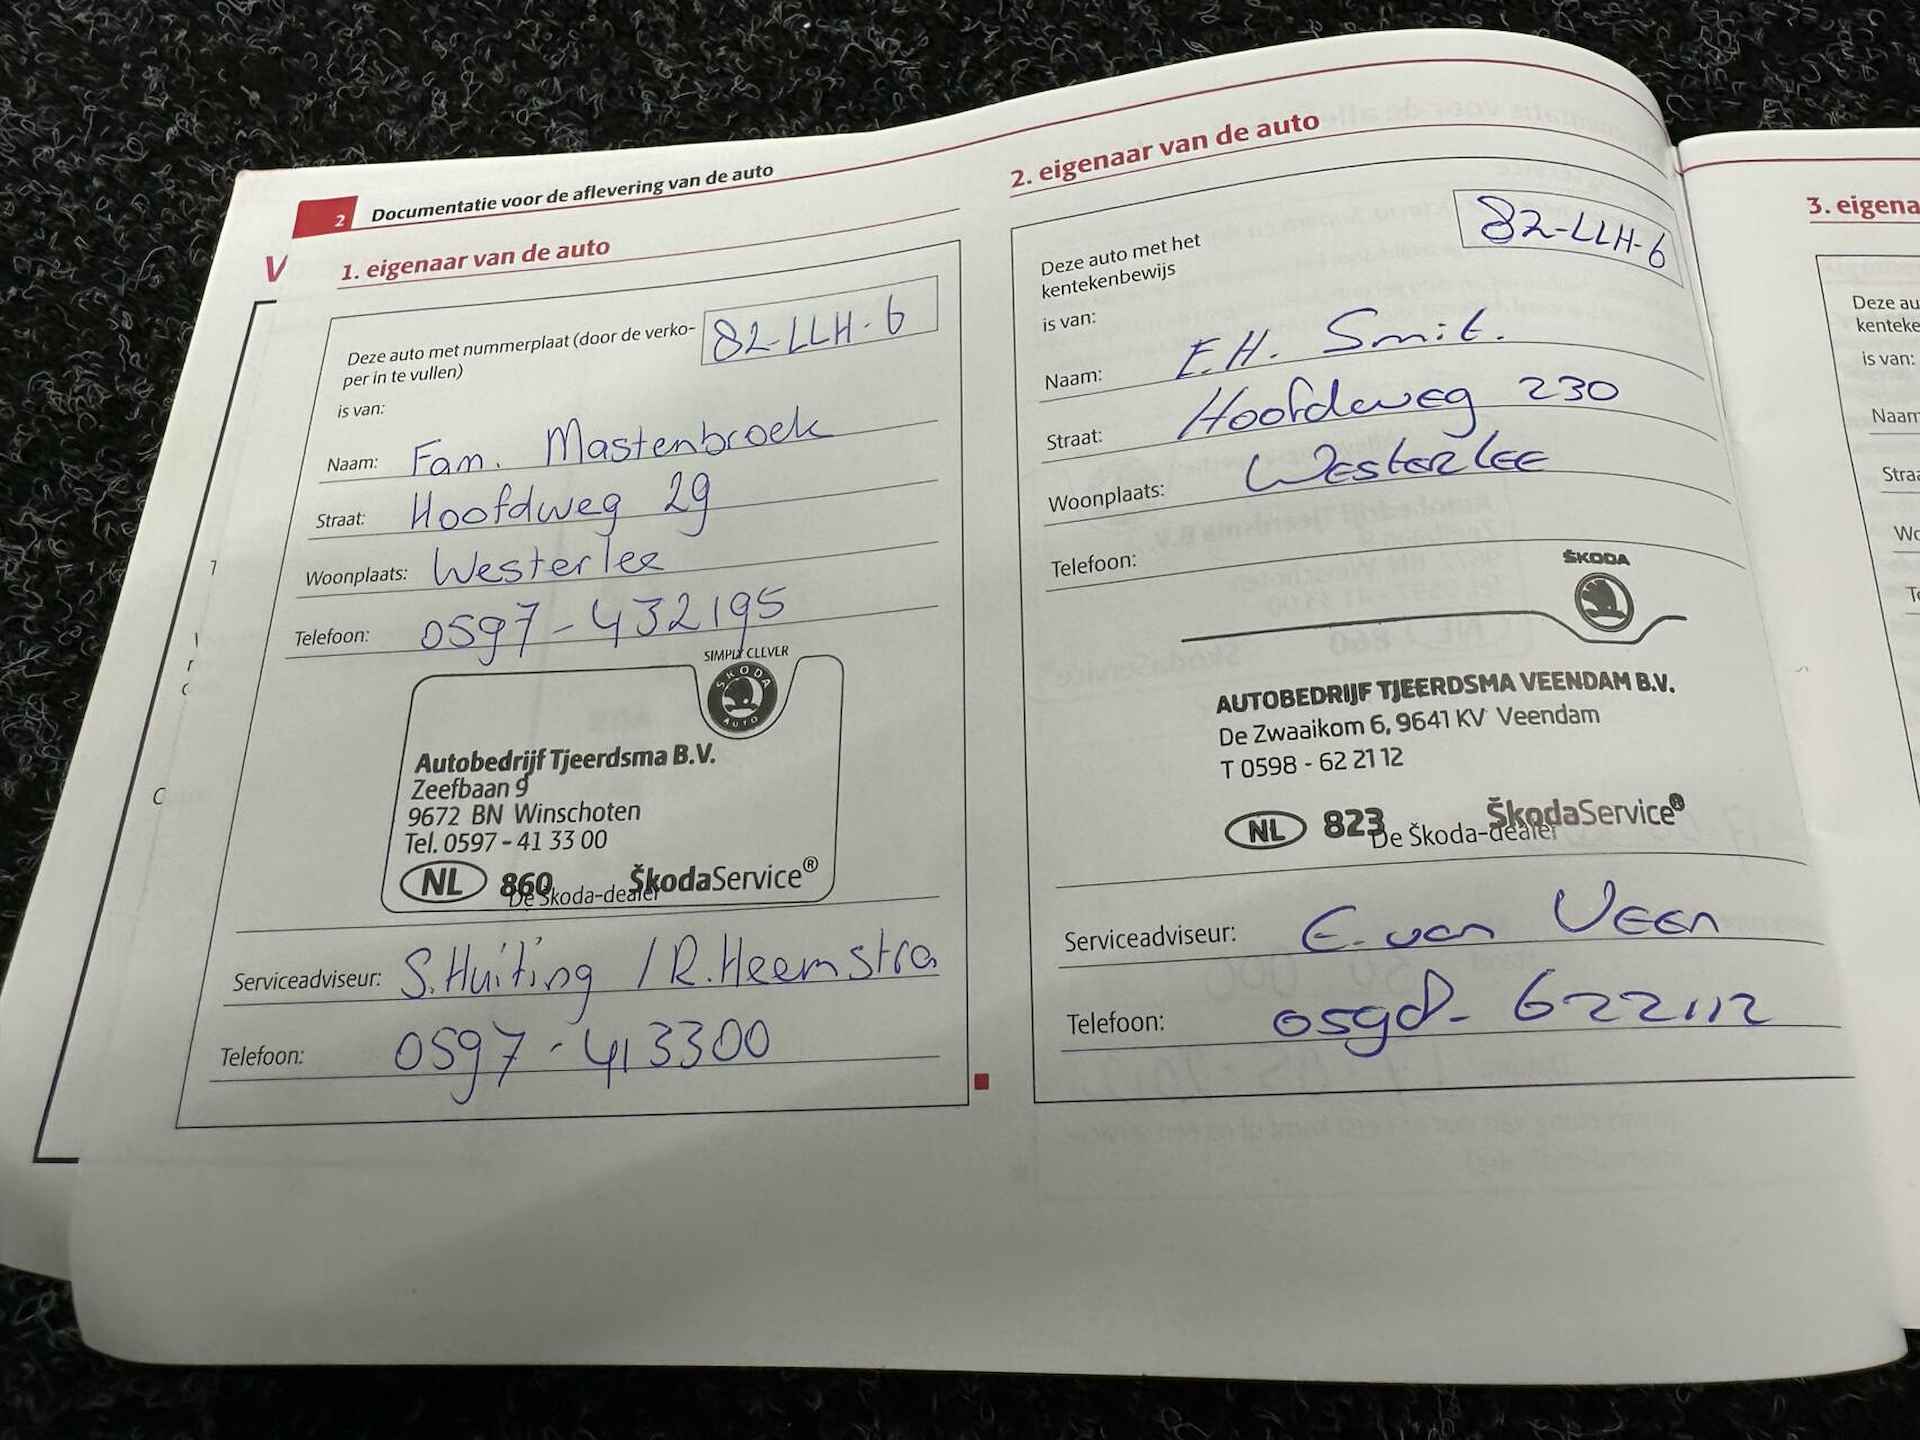 2 Documentatie voor de aflevering van de auto
V
1. eigenaar van de auto
Deze auto met nummerplaat (door de verko-
per in te vullen)
82-LLH-6
is van:
Naam: Fam. Mastenbroek
Straat: Hoofdweg 29
Woonplaats: Westerlee
Telefoon: 0597-432195
SIMPLY CLEVER
SKODA
AUTO
Autobedrijf Tjeerdsma B.V.
Zeefbaan 9
9672 BN Winschoten
Tel. 0597-41 33 00
NL 860 ŠkodaService®
De Škoda-dealer
Serviceadviseur: S. Huiting / R. Heemstra
Telefoon: 0597-413300
2. eigenaar van de auto
Deze auto met het
kentekenbewijs
82-LLH-6
is van:
Naam: E.H. Smit.
Straat: Hoofdweg 230
Woonplaats: Westerlee
Telefoon:
ŠKODA
AUTOBEDRIJF TJEERDSMA VEENDAM B.V.
De Zwaaikom 6, 9641 KV Veendam
T 0598 - 62 21 12
NL 823 ŠkodaService®
De Škoda-dealer
Serviceadviseur: E. van Veen
Telefoon: 0598-622112
3. eigena
Deze au
kenteke
is van:
Naam
Straa
Wo
Te